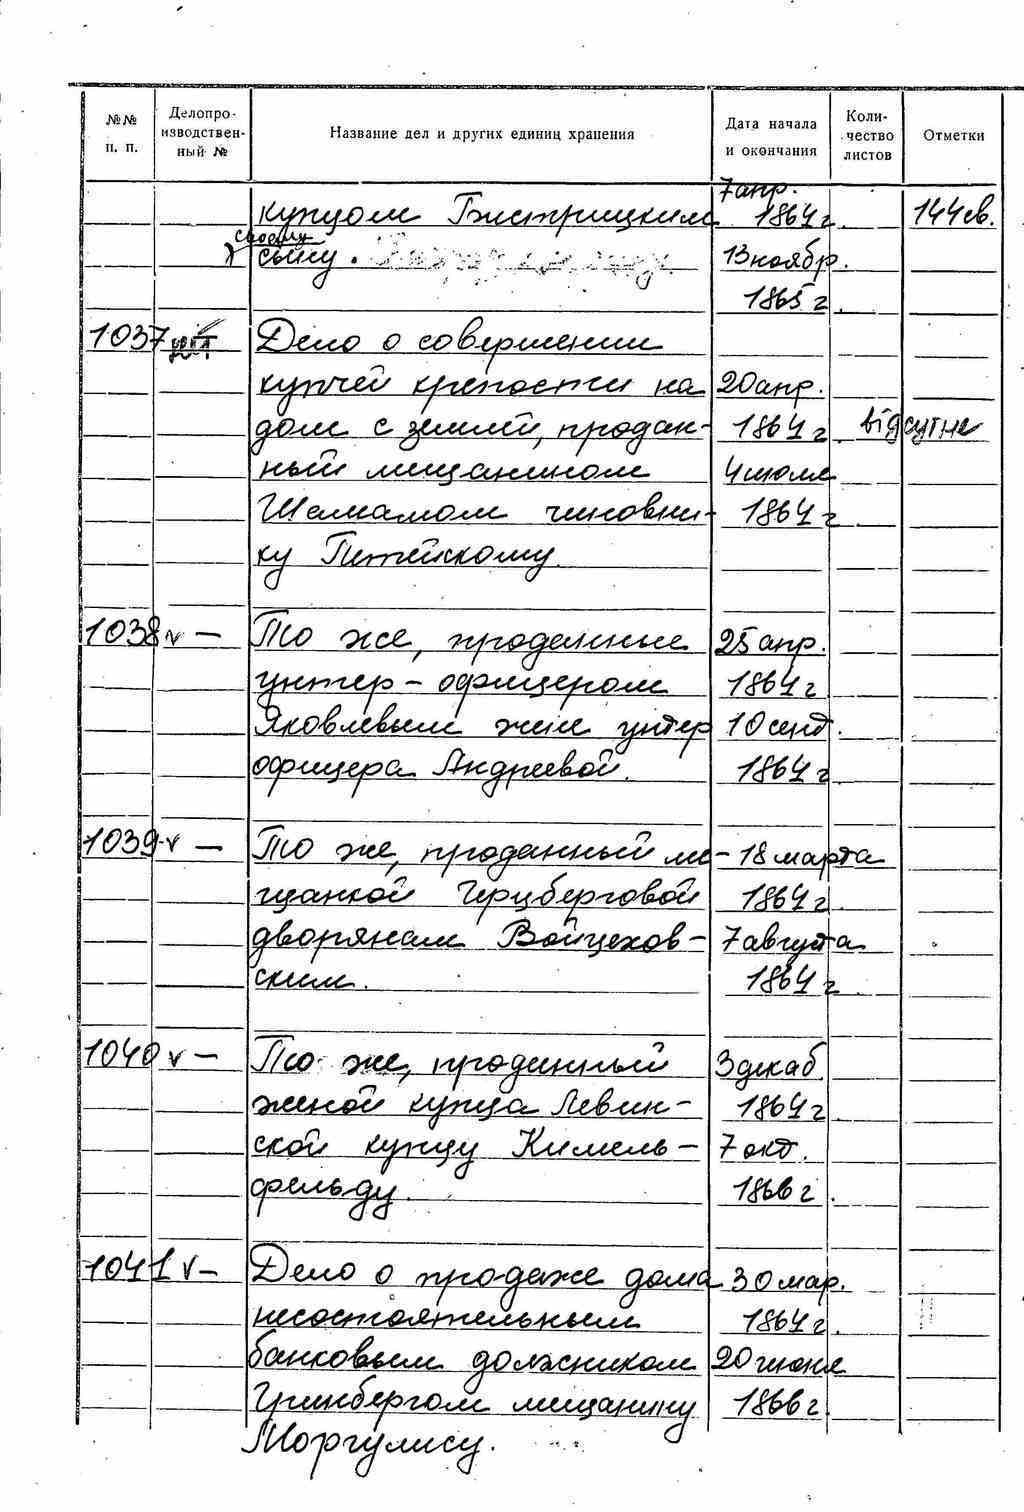 №№ п. п. Делопроизводствен- ный № Название дел и других единиц хранения Дата начала и окончания Коли- чество листов Отметки
купцом Бистрицким 7 апр. 1864 г. 144 св.
своему
сыну. 13 ноябр.
1865 г.
1037 Дело о совершении
купчей крепости на 20 апр.
дом с землей, продан- 1864 г. відсутнє
ный мещанином 4 июля
Шамамом чиновни- 1864 г
ку Питейскому.
1038 v — То же, проданные 25 апр.
унтер-офицером 1864 г
Яковлевым жене унтер 10 сент.
офицера Андреевой. 1864 г
1039 v — То же, проданный ме- 18 марта
щанкой Герцберговой 1864 г.
дворянам Войцехов- 7 августа
ским. 1864 г
1040 v — То же, проданный 3 декаб.
женой купца Левин- 1864 г.
ской купцу Кимель- 7 окт.
фельду. 1866 г.
1041 v — Дело о продаже дома 30 мар.
несостоятельным 1864 г.
банковым должником 20 июня
Гринбергом мещанину 1866 г.
Моргулису.